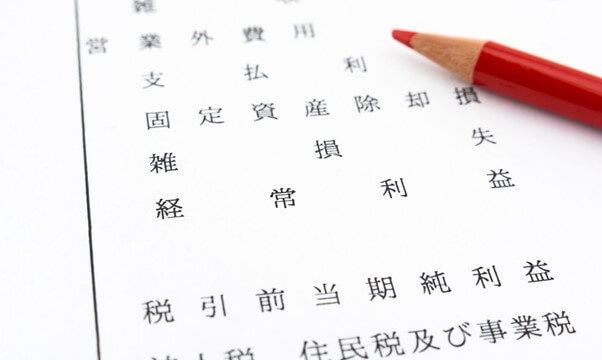 雑
営業外費用
支払利
固定資産除却損
雑損失
経常利益
税引前当期純利益
税、住民税及び事業税